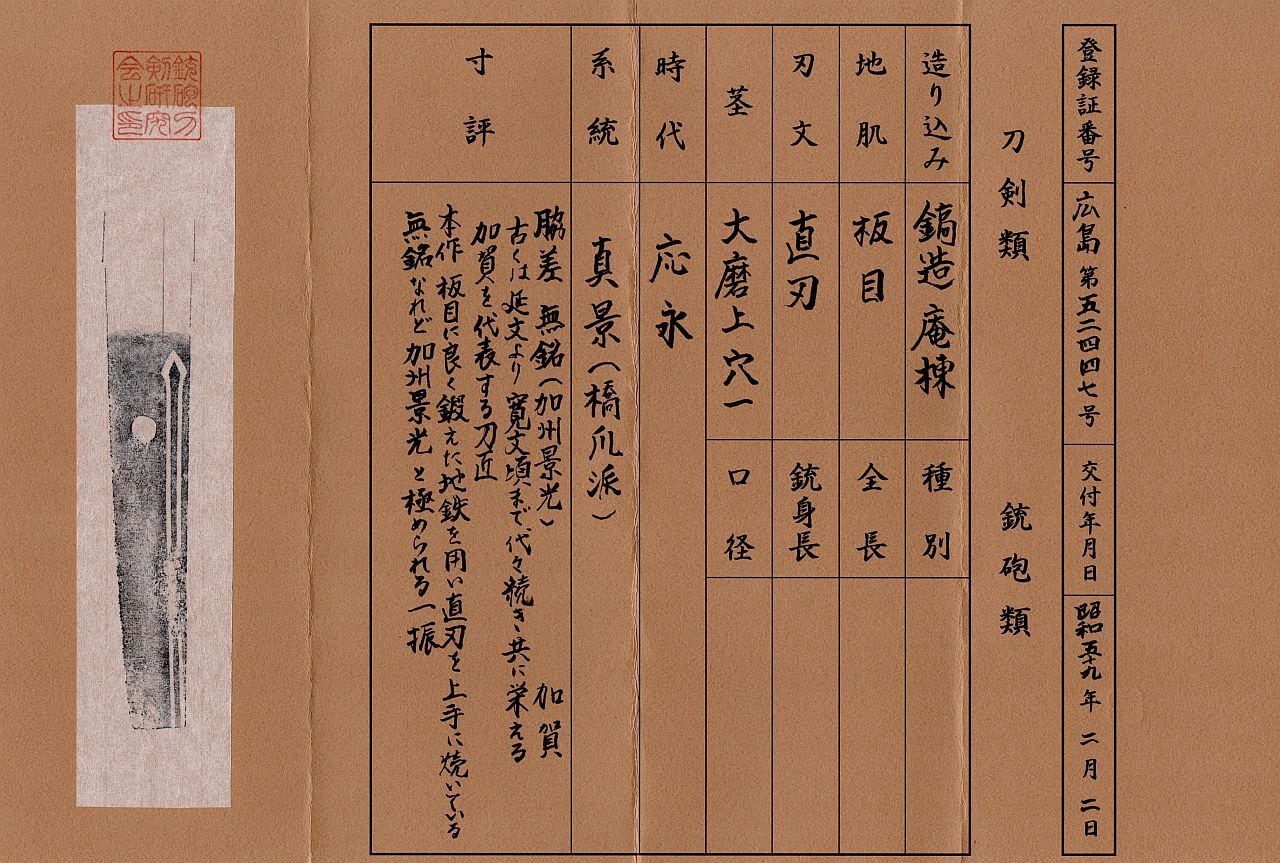 登録証番号 広島 第五二四四七号 交付年月日 昭和五十九年 二月 二日
刀剣類 銃砲類
造り込み 鎬造 庵棟 種別
地肌 板目 全長
刃文 直刃 銃身長
茎 大磨上穴一 口径
時代 応永
系統 真景(橋爪派)
寸評
脇差 無銘(加州景光) 加賀
古くは延文より寛文頃まで代々続き共に栄える
加賀を代表する刀匠
本作 板目に良く鍛えた地鉄を用い直刃を上手に焼いている
無銘なれど加州景光と極められる一振
銃砲刀
剣研究
会之印